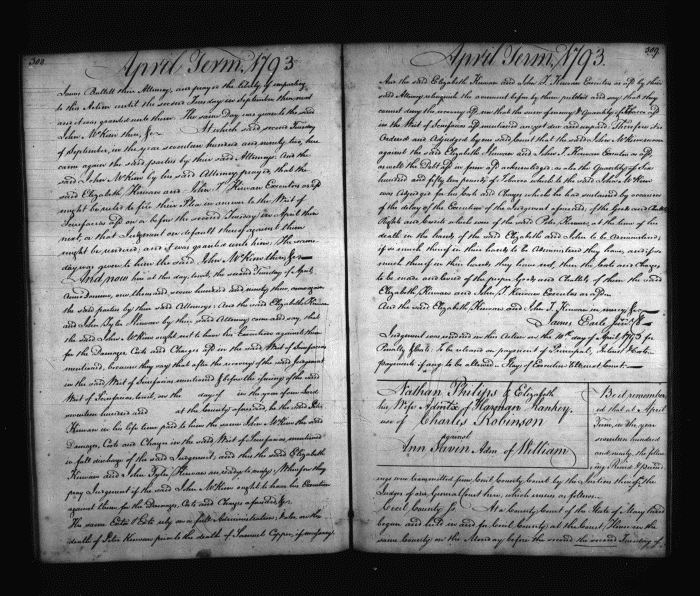 308
April Term, 1793
James Battell their Attorney, and prayed the liberty of imparling
to this Action until the second Tuesday in September then next
and it was granted unto them. The same Day was given to the said
John McKim then, &c. At which said second Tuesday
of September, in the year seventeen hundred and ninety two, here
came again the said parties by their said Attorneys. And the
said John McKim by his said Attorney prayed, that the
said Elizabeth Kirwan and John T. Kirwan Executors as aforesaid
might be ruled to file their Plea in answer to the Writ of
Scirefacias aforesaid on or before the second Tuesday in April then
next, or that Judgment on default thereof against them
might be rendered, and it was granted unto him. The same
day was given to him the said John McKim then &c.
And now here at this day, to wit, the second Tuesday of April
Anno Domini, one thousand, seven hundred and ninety three, came again
the said parties by their said Attorneys. And the said Elizabeth Kirwan
and John Tyler Kirwan by their said Attorney came and say, that
the said John McKim ought not to have his Execution against them
for the Damages, Costs and Charges aforesaid in the said Writ of Scirefacias
mentioned, because they say that after the recovery of the said Judgment
in the said Writ of Scirefacias mentioned & before the issuing of the said
Writ of Scirefacias, to wit, on the day of in the year of our Lord
seventeen hundred and at the County aforesaid, he the said Peter
Kirwan in his life time paid to him the same John McKim the said
Damages, Costs and Charges in the said Writ of Scirefacias mentioned
in full discharge of the said Judgment, and this the said Elizabeth
Kirwan and John Tyler Kirwan are ready to verify; Wherefore they
pray Judgment if the said John McKim ought to have his Execution
against them for the Damages, Costs and Charges aforesaid &c.
The same
death of Peter Kirwan prior to the death of Samuel Copper, if necessary.
309.
April Term, 1793.
And the said Elizabeth Kirwan and John T. Kirwan Executors as aforesaid by their
said Attorney relinquish the averment before by them pleaded and say that they
cannot deny the recovery aforesaid nor that the sum of money & Quantity of Tobacco aforesaid
in the Writ of Scirefacias aforesaid mentioned are yet due and unpaid. Therefore it is
Ordered and Adjudged by our said Court that the said John McKim recover
against the said Elizabeth Kirwan and John T. Kirwan Executors as aforesaid,
as well the Debt aforesaid in form aforesaid acknowledged, as also the Quantity of Six
hundred and fifty two pounds of Tobacco which to the said John McKim
was Adjudged for his Costs and Charges which he had sustained by occasion
of the delay of the Execution of the Judgment aforesaid, of the Goods and Chattels
Rights and Credits which were of the said Peter Kirwan, at the time of his
death in the hands of the said Elizabeth and John to be Administered;
if so much thereof in their hands to be Administered they have, and if so
much thereof in their hands they have not, then the Costs and Charges,
to be made and levied of the proper Goods and Chattels of them the said
Elizabeth Kirwan and John T. Kirwan Executors as aforesaid
And the said Elizabeth Kirwan and John T. Kirwan in mercy &c.
James Earle Junr. Clk
Judgment was rendered in this Action on the 10th day of April 1793 for
Penalty & Costs. To be released on payment of Principal, Interest & Costs
payments if any to be allowed. Stay of Execution till next Court.
Nathan Philips & Elizabeth
his Wife Admtrx of Harman Hankey,
use of Charles Robinson
against
Ann Savin Adm. of William
Be it remember
ed that at April
Term, in the year
seventeen hundred
and ninety, the follow
ing Record & Proceed
ings was transmitted from Cecil County Court by the Justices thereof to the
Judges of our General Court here, which ensues as follows.
Cecil County Ss. At a County Court of the State of Maryland
began and held in and for Cecil County at the Court House in the
same County on the Monday before the second the second Tuesday of